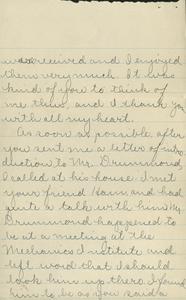 was received and I enjoyed
them very much. It was
kind of you to think of
me thus, and I thank you
with all my heart.
As soon as possible after
you sent me a letter of intro-
duction to Mr. Drummond
I called at his house. I met
your friend and had
quite a talk with him. Mr.
Drummond happened to
be at a meeting at the
Mechanics Institute and
left word that I should
look him up there. I found
him to be as you said a